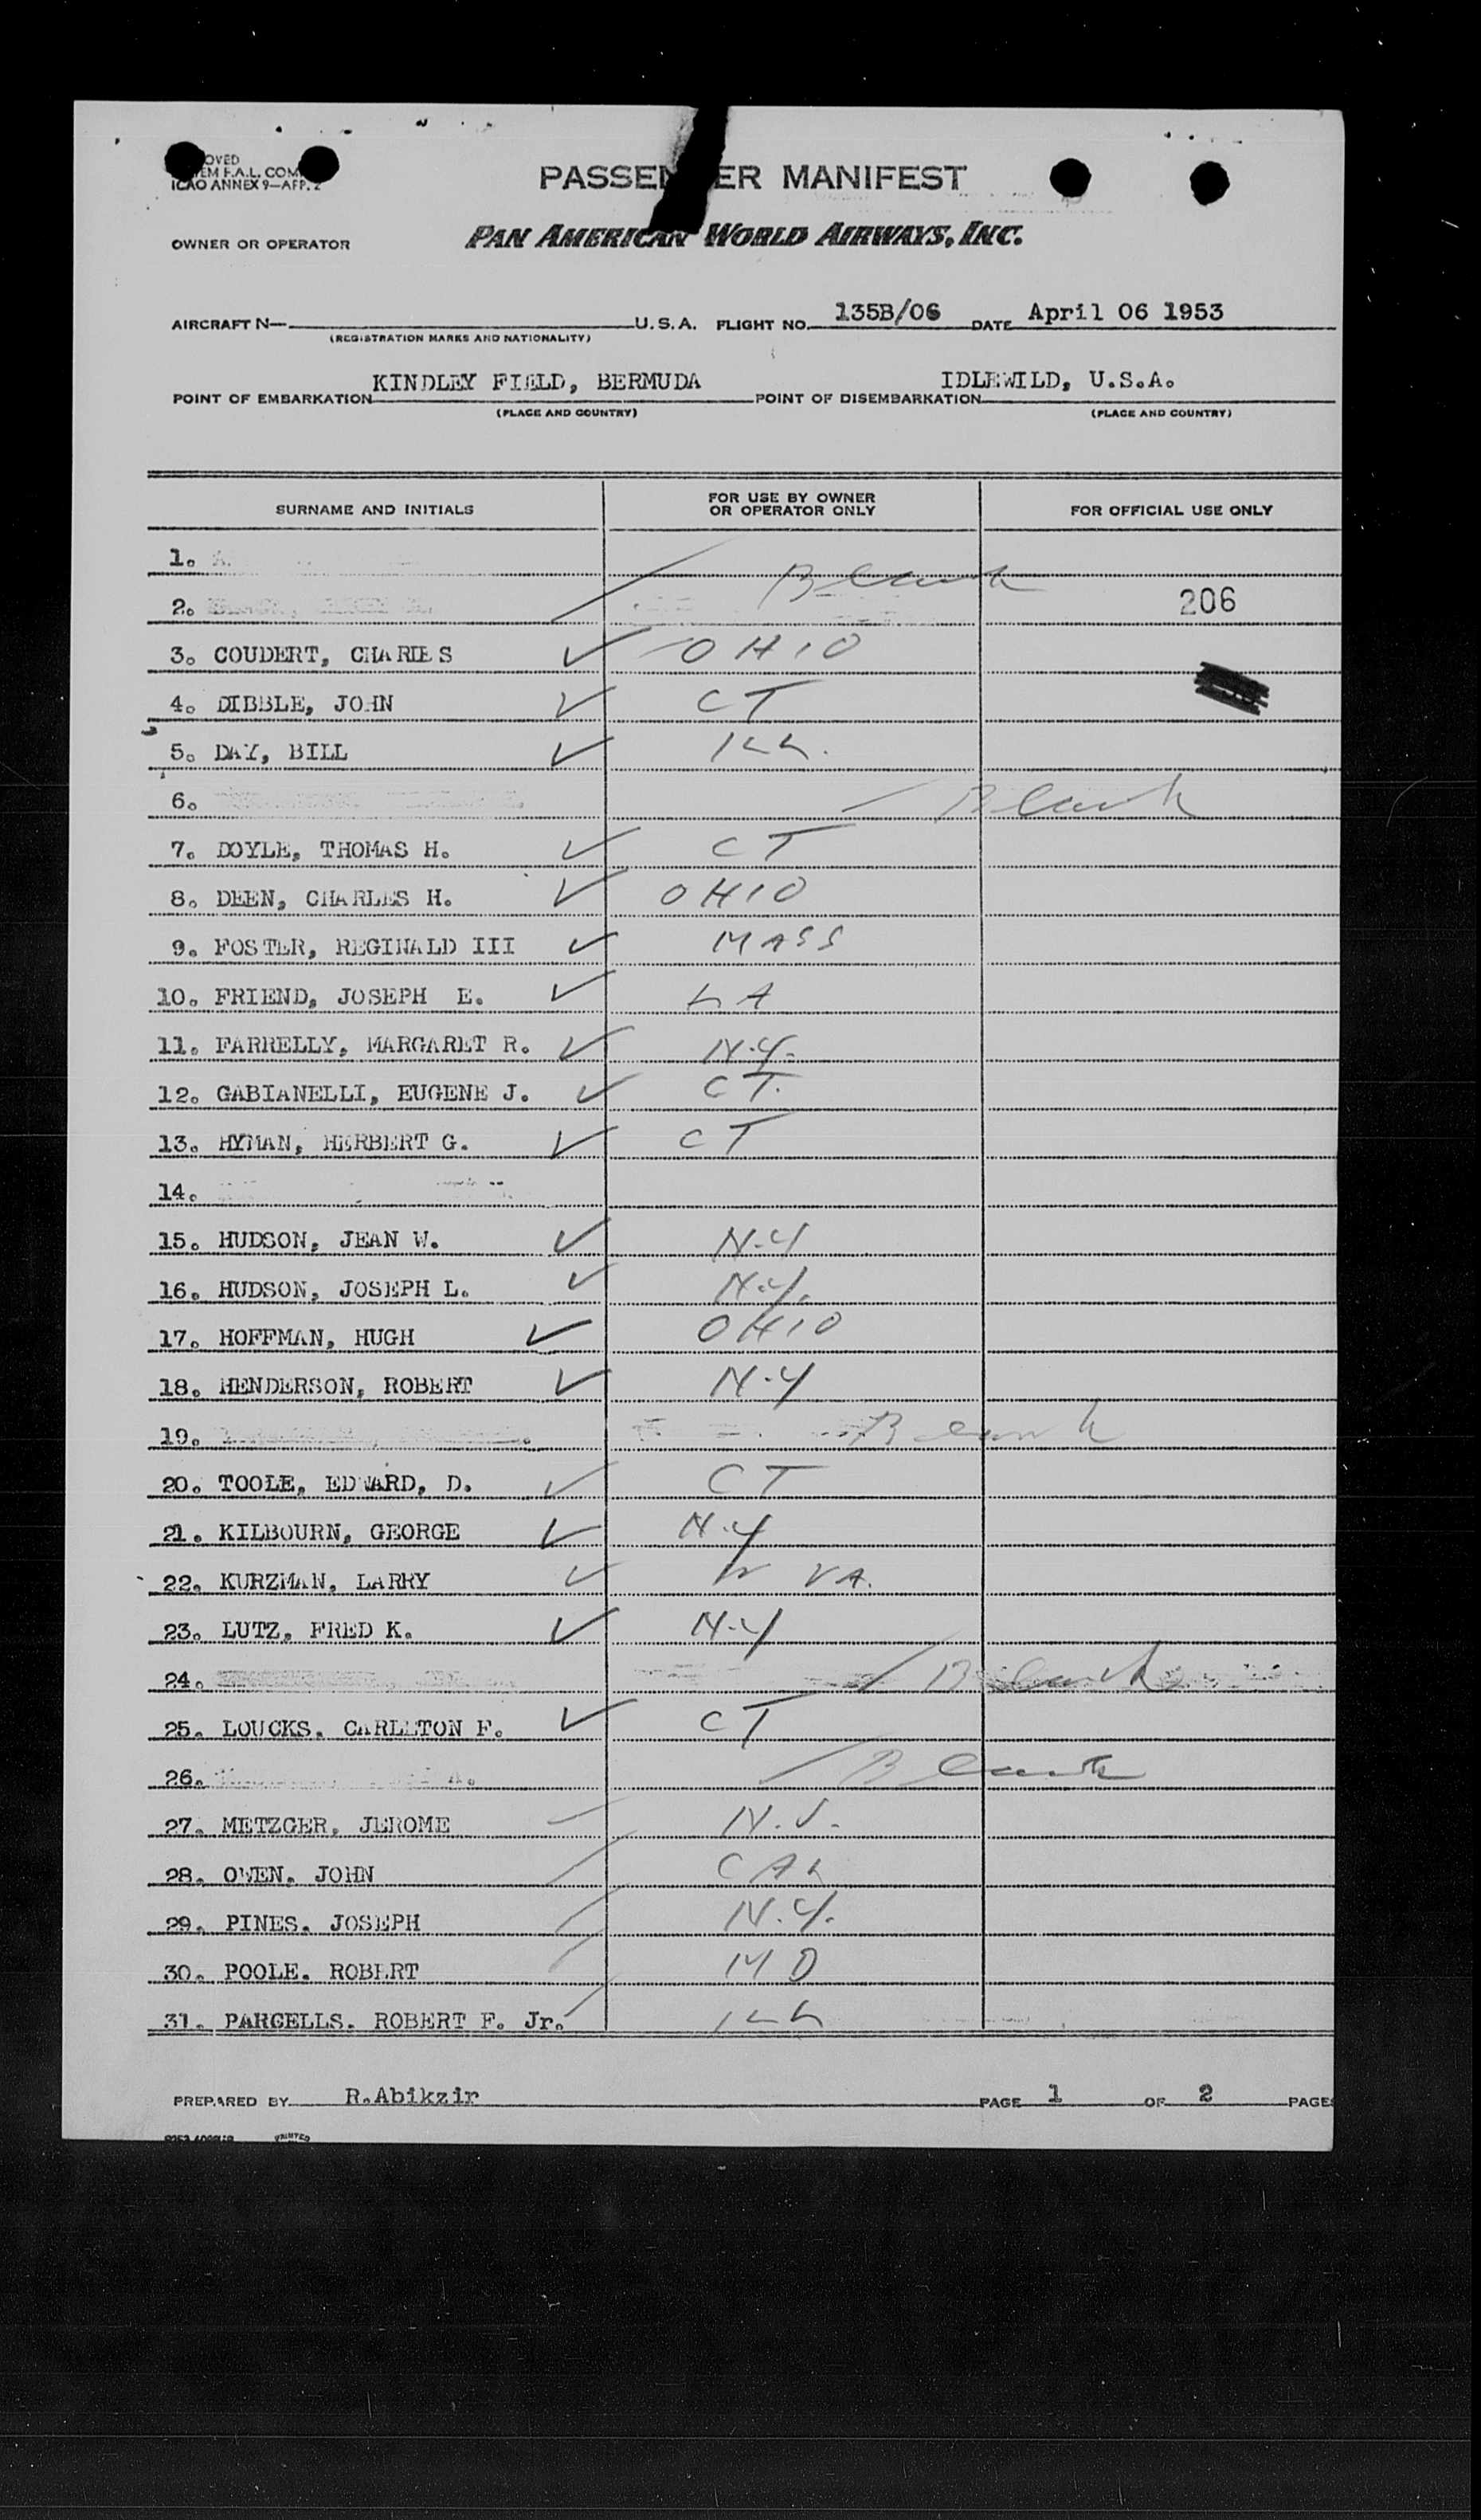 OVED
EM F.A.L. COM
ICAO ANNEX 9—APP. 2
PASSEN ER MANIFEST
OWNER OR OPERATOR PAN AMERICAN WORLD AIRWAYS, INC.
AIRCRAFT N— U.S.A. FLIGHT NO. 135B/06 DATE April 06 1953
(REGISTRATION MARKS AND NATIONALITY)
POINT OF EMBARKATION KINDLEY FIELD, BERMUDA POINT OF DISEMBARKATION IDLEWILD, U.S.A.
(PLACE AND COUNTRY) (PLACE AND COUNTRY)
SURNAME AND INITIALS FOR USE BY OWNER OR OPERATOR ONLY FOR OFFICIAL USE ONLY
1. Blank
2. 206
3. COUDERT, CHARLES ✓ OHIO
4. DIBBLE, JOHN ✓ CT
5. DAY, BILL ✓ ILL.
6. Blank
7. DOYLE, THOMAS H. ✓ CT
8. DEEN, CHARLES H. ✓ OHIO
9. FOSTER, REGINALD III ✓ MASS
10. FRIEND, JOSEPH E. ✓ LA
11. FARRELLY, MARGARET R. ✓ N.Y.
12. GABIANELLI, EUGENE J. ✓ CT.
13. HYMAN, HERBERT G. ✓ CT
14.
15. HUDSON, JEAN W. ✓ N.Y
16. HUDSON, JOSEPH L. ✓ N.Y.
17. HOFFMAN, HUGH ✓ OHIO
18. HENDERSON, ROBERT ✓ N.Y
19. Blank
20. TOOLE, EDWARD, D. ✓ CT
21. KILBOURN, GEORGE ✓ N.Y
22. KURZMAN, LARRY ✓ W VA.
23. LUTZ, FRED K. ✓ N.Y
24. Blank
25. LOUCKS, CARLETON F. ✓ CT
26. Blank
27. METZGER, JEROME N.J.
28. OWEN, JOHN CAL
29. PINES, JOSEPH N.Y.
30. POOLE, ROBERT MD
31. PARCELLS, ROBERT F. Jr. ILL
PREPARED BY R.Abikzir PAGE 1 OF 2 PAGES